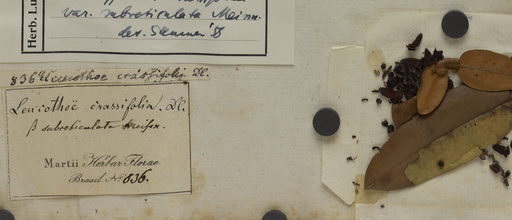 Herb. Lu
var. subreticulata Meissn.
det. Sleumer
836 Leucothoe crassifolia DC.
Leucothoë crassifolia. DC.
β subreticulata Meissn.
Martii Herbar. Florae
Brasil. No 836.